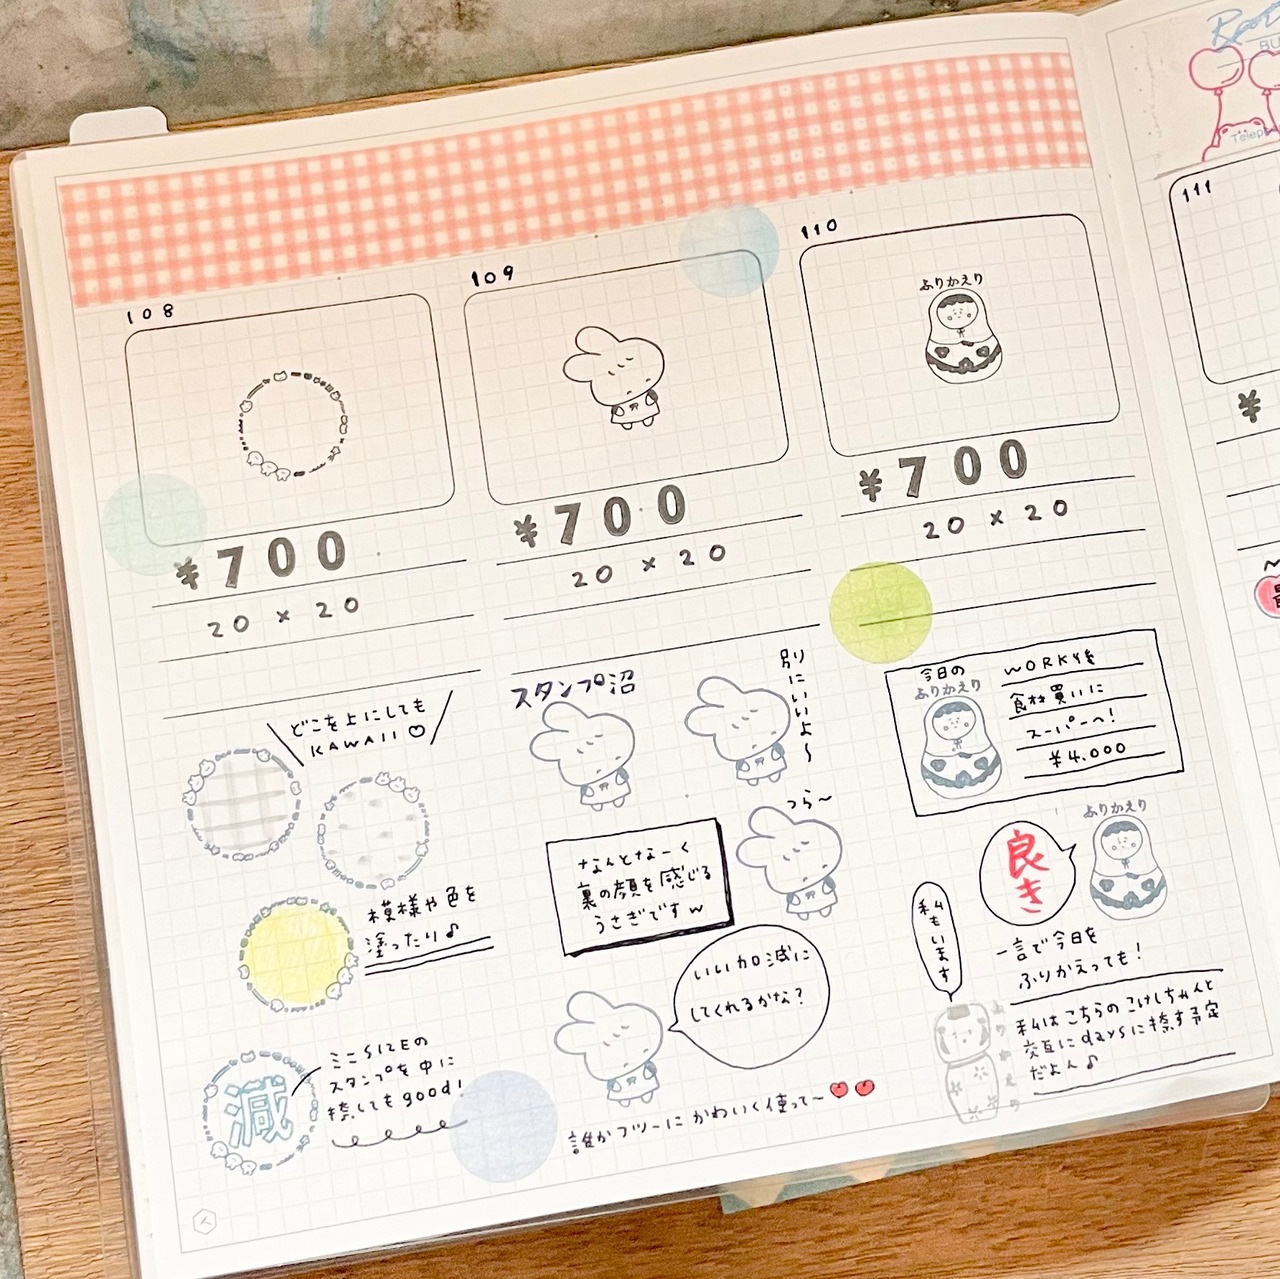 108
¥700
20 × 20
どこを上にしても
KAWAII♡
模様や色を
塗ったり♪
減
ミニSIZEの
スタンプを中に
捺してもgood!
109
¥700
20 × 20
スタンプ沼
別にいいよ〜
つら〜
なんとなーく
裏の顔を感じる
うさぎですw
いい加減に
してくれるかな?
誰かフツーにかわいく使って〜
110
ふりかえり
¥700
20 × 20
今日の
ふりかえり
WORK後
食材買いに
スーパーへ!
¥4.000
ふりかえり
良き
一言で今日を
ふりかえっても!
私もいます
ふりかえり
私はこちらのこけしちゃんと
交互にdaysに捺す予定
だよん♪
111
¥